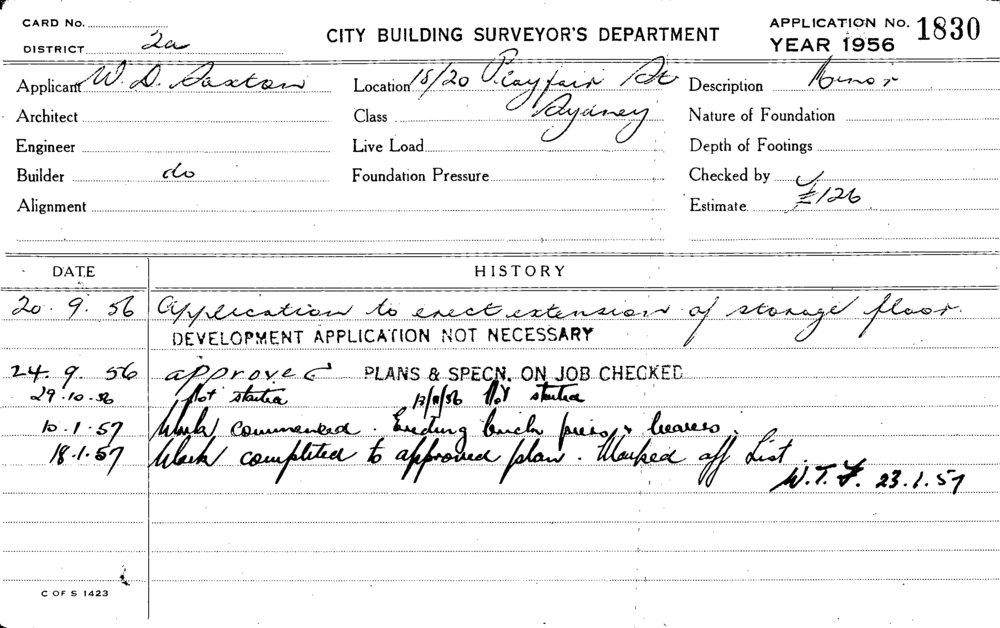 CARD No.
DISTRICT 2a
CITY BUILDING SURVEYOR'S DEPARTMENT
APPLICATION No. 1830
YEAR 1956
Applicant W. D. Saxton Location 18/20 Playfair St Description Minor
Architect Class Sydney Nature of Foundation
Engineer Live Load Depth of Footings
Builder do Foundation Pressure Checked by
Alignment Estimate £126
DATE HISTORY
20. 9. 56 Application to erect extension of storage floor.
DEVELOPMENT APPLICATION NOT NECESSARY
24. 9. 56 approved PLANS & SPECN. ON JOB CHECKED
29.10.56 Not started 13/11/56 Not started
10.1.57 Work commenced. Erecting brick piers & bearers.
18.1.57 Work completed to approved plan. Marked off List.
W.T.F. 23.1.57
C OF S 1423